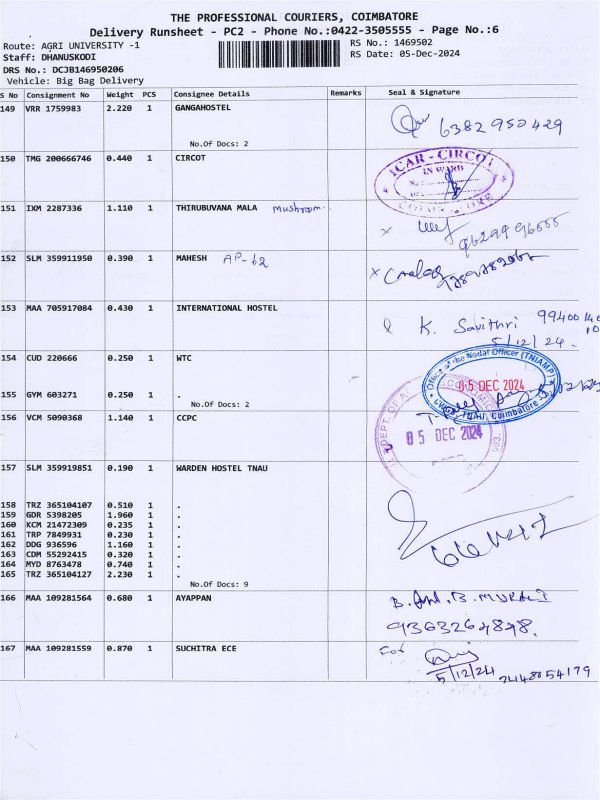 THE PROFESSIONAL COURIERS, COIMBATORE
Delivery Runsheet - PC2 - Phone No.:0422-3505555 - Page No.:6
Route: AGRI UNIVERSITY -1
Staff: DHANUSKODI
DRS No.: DCJB146950206
Vehicle: Big Bag Delivery
RS No.: 1469502
RS Date: 05-Dec-2024
S No Consignment No Weight PCS Consignee Details Remarks Seal & Signature
149 VRR 1759983 2.220 1 GANGAHOSTEL
No.Of Docs: 2
6382952429
150 TMG 200666746 0.440 1 CIRCOT
ICAR - CIRCOT
INWARD
151 IXM 2287336 1.110 1 THIRUBUVANA MALA mushroom
x
152 SLM 359911950 0.390 1 MAHESH AP-62
x
153 MAA 705917084 0.430 1 INTERNATIONAL HOSTEL
K. Savithri
5/12/24.
154 CUD 220666 0.250 1 WTC
Office of the Nodal Officer (TNIAMP)
05 DEC 2024
TNAU, Coimbatore
155 GYM 603271 0.250 1 .
No.Of Docs: 2
156 VCM 5090368 1.140 1 CCPC
05 DEC 2024
157 SLM 359919851 0.190 1 WARDEN HOSTEL TNAU
158 TRZ 365104107 0.510 1 .
159 GDR 5398205 1.960 1 .
160 KCM 21472309 0.235 1 .
161 TRP 7849931 0.230 1 .
162 DDG 936596 1.160 1 .
163 CDM 55292415 0.320 1 .
164 MYD 8763478 0.740 1 .
165 TRZ 365104127 2.230 1 .
No.Of Docs: 9
166 MAA 109281564 0.680 1 AYAPPAN
B. MURALI
9363264848.
167 MAA 109281559 0.870 1 SUCHITRA ECE
For
5/12/24